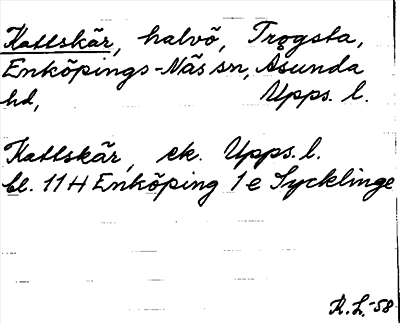 Kattskär, halvö, Trögsta,
Enköpings-Näs sn, Åsunda
hd, Upps. l.
Kattskär, ek. Upps. l.
bl. 11 H Enköping 1 e Sycklinge
R. L. -58